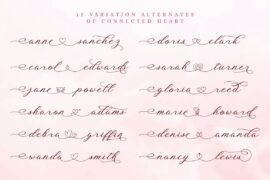 12 VARIATION ALTERNATES
OF CONNECTED HEART
anne sanchez
doris clark
carol edwards
sarah turner
jane powell
gloria reed
sharon adams
marie howard
debra griffin
denise amanda
wanda smith
nancy lewis